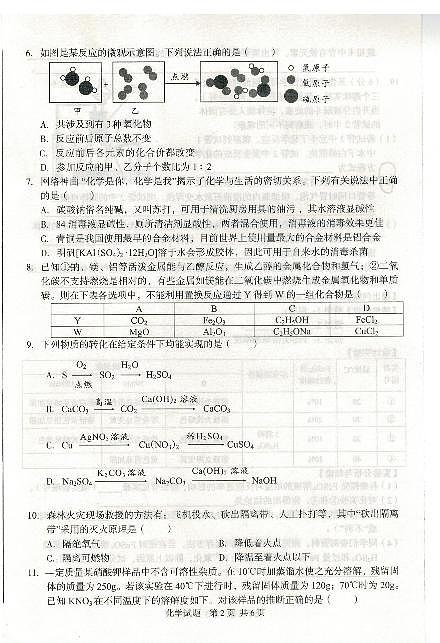 6. 如图是某反应的微观示意图,下列说法正确的是( )
甲 乙 点燃
氢原子
氧原子
硫原子
A. 共涉及到有3种氧化物
B. 反应前后原子总数不变
C. 反应前后各元素的化合价都改变
D. 参加反应的甲、乙分子个数比为1:2
7. 网络神曲“化学是你,化学是我”揭示了化学与生活的密切关系。下列有关说法中正确
的是( )
A. 碳酸钠俗名纯碱,又叫苏打,可用于清洗厨房用具的油污,其水溶液显碱性
B. 84消毒液显碱性,厕所清洁剂显酸性,两者混合使用,消毒液的消毒效果更佳
C. 青铜是我国使用最早的合金材料,目前世界上使用量最大的合金材料是铝合金
D. 明矾[KAl(SO₄)₂·12H₂O]溶于水会形成胶体,因此可用于自来水的消毒杀菌
8. 已知①钠、镁、铝等活泼金属能与乙醇反应,生成乙醇的金属化合物和氢气;②二氧
化碳不支持燃烧是相对的,有些金属如镁能在二氧化碳中燃烧生成金属氧化物和单质
碳。则在下表各选项中,不能利用置换反应通过Y得到W的一组化合物是( )
A B C D
Y CO₂ Fe₂O₃ C₂H₅OH FeCl₃
W MgO Al₂O₃ C₂H₅ONa CuCl₂
9. 下列物质的转化在给定条件下均能实现的是( )
A. S O₂ 点燃 SO₂ H₂O H₂SO₄
B. CaCO₃ 高温 CO₂ Ca(OH)₂ 溶液 CaCO₃
C. Cu AgNO₃ 溶液 Cu(NO₃)₂ 稀H₂SO₄ CuSO₄
D. Na₂SO₄ K₂CO₃ 溶液 Na₂CO₃ Ca(OH)₂ 溶液 NaOH
10. 森林火灾现场救援的方法有:飞机投水、砍出隔离带、人工扑打等,其中“砍出隔离
带”采用的灭火原理是( )
A. 隔绝氧气 B. 降低着火点
C. 隔离可燃物 D. 降温至着火点以下
11. 一定质量某硝酸钾样品中不含可溶性杂质。在10℃时加蒸馏水使之充分溶解,残留固
体的质量为250g。若该实验在40℃下进行时,残留固体质量为120g;70℃时为20g。
已知KNO₃在不同温度下的溶解度如下。对该样品的推断正确的是( )
化学试题 第2页 共6页